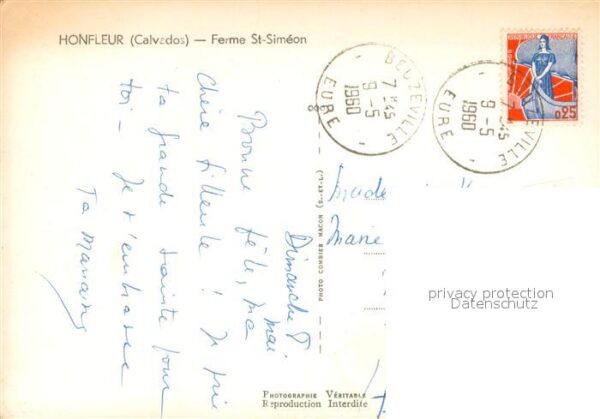 HONFLEUR (Calvados) — Ferme St-Siméon
REPUBLIQUE FRANÇAISE
0,25
BEUZEVILLE
7H45
9-5
1960
EURE
BEUZEVILLE
7H45
9-5
1960
EURE
8
Dimanche 8 mai
Bonne fête, ma
chère filleule ! Je prie
ta grande sainte pour
toi - Je t'embrasse
Ta Marraine
PHOTO COMBIER MACON (S.-ET-L.)
Made
Marie
privacy protection
Datenschutz
PHOTOGRAPHIE VÉRITABLE
Reproduction Interdite